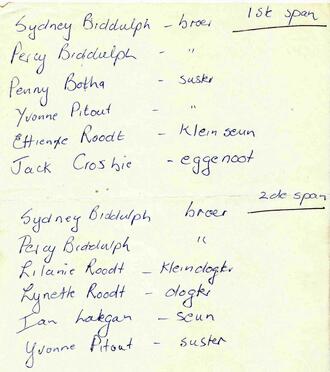 1ste span
Sydney Biddulph - broer
Percy Biddulph - "
Penny Botha - suster
Yvonne Pitout - "
Ettienne Roodt - Klein seun
Jack Crosbie - eggenoot
2de span
Sydney Biddulph broer
Percy Biddulph "
Lilanie Roodt - Kleindogter
Lynette Roodt - dogter
Ian - seun
Yvonne Pitout - suster